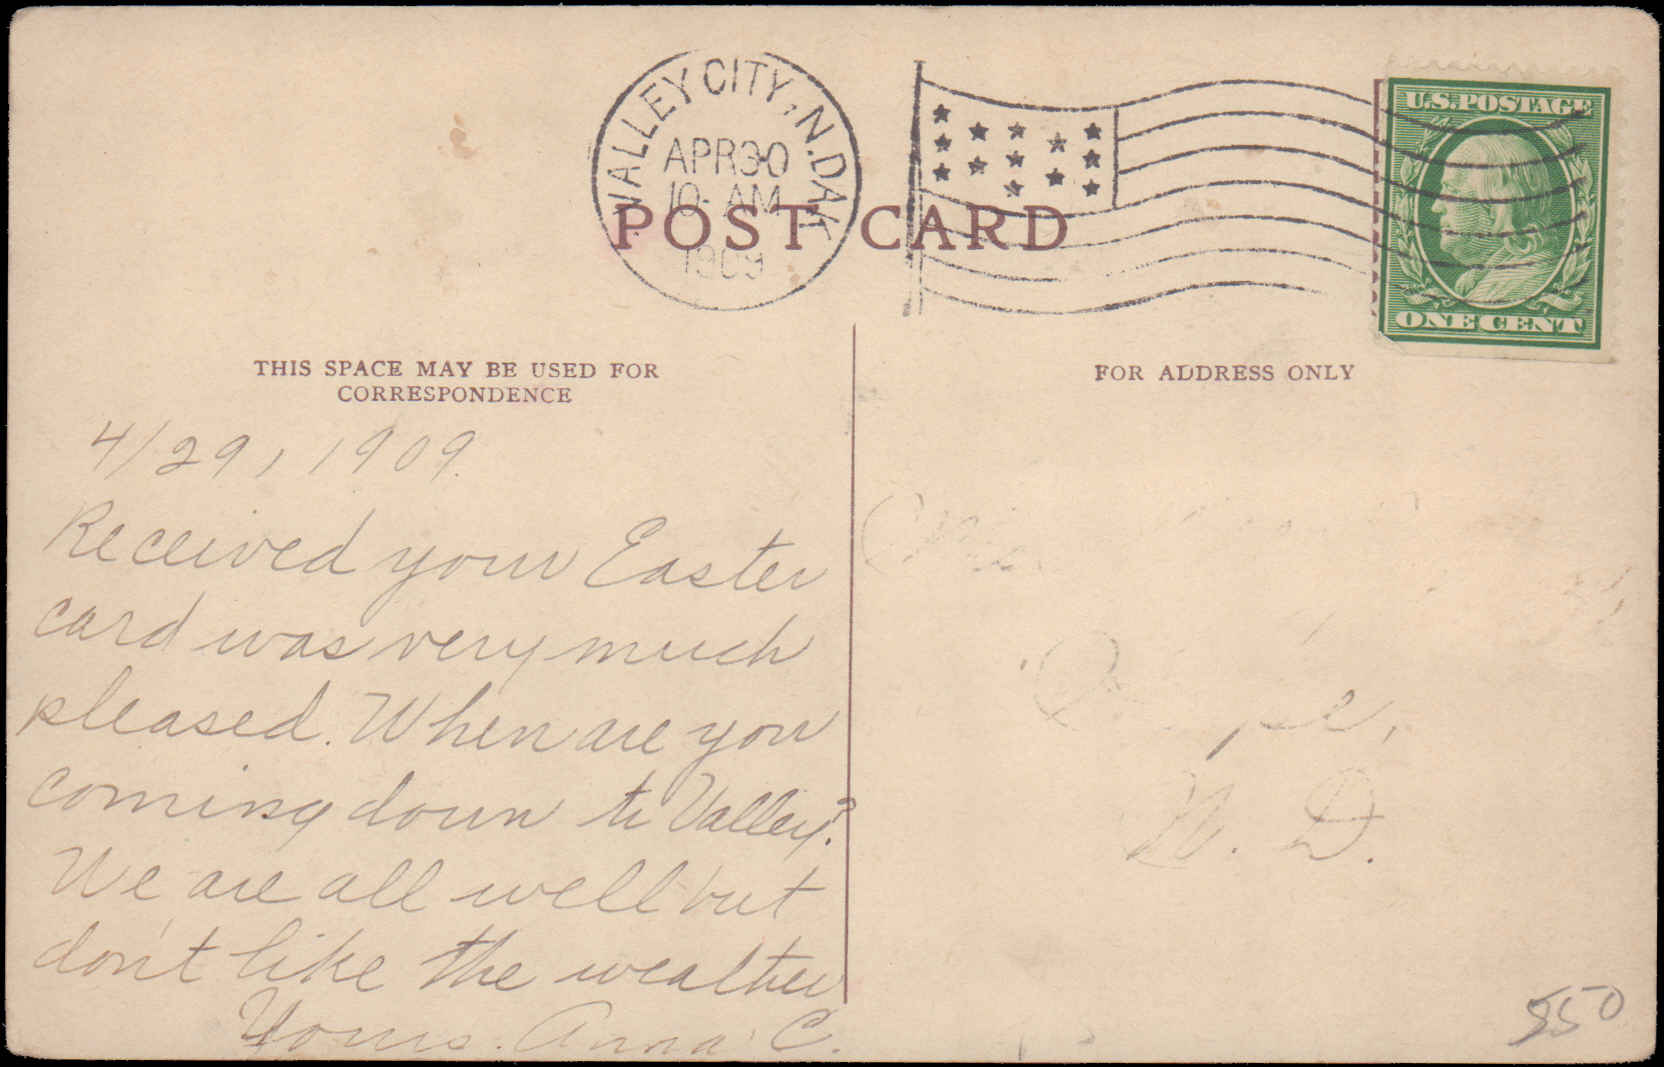 VALLEY CITY, N. DAK.
APR 30
10 - AM
1909
U.S. POSTAGE
ONE CENT
POST CARD
THIS SPACE MAY BE USED FOR
CORRESPONDENCE
FOR ADDRESS ONLY
4/29, 1909.
Received your Easter
card was very much
pleased. When are you
coming down to Valley?
We are all well but
don't like the weather
Yours. Anna C.
N. D.
550